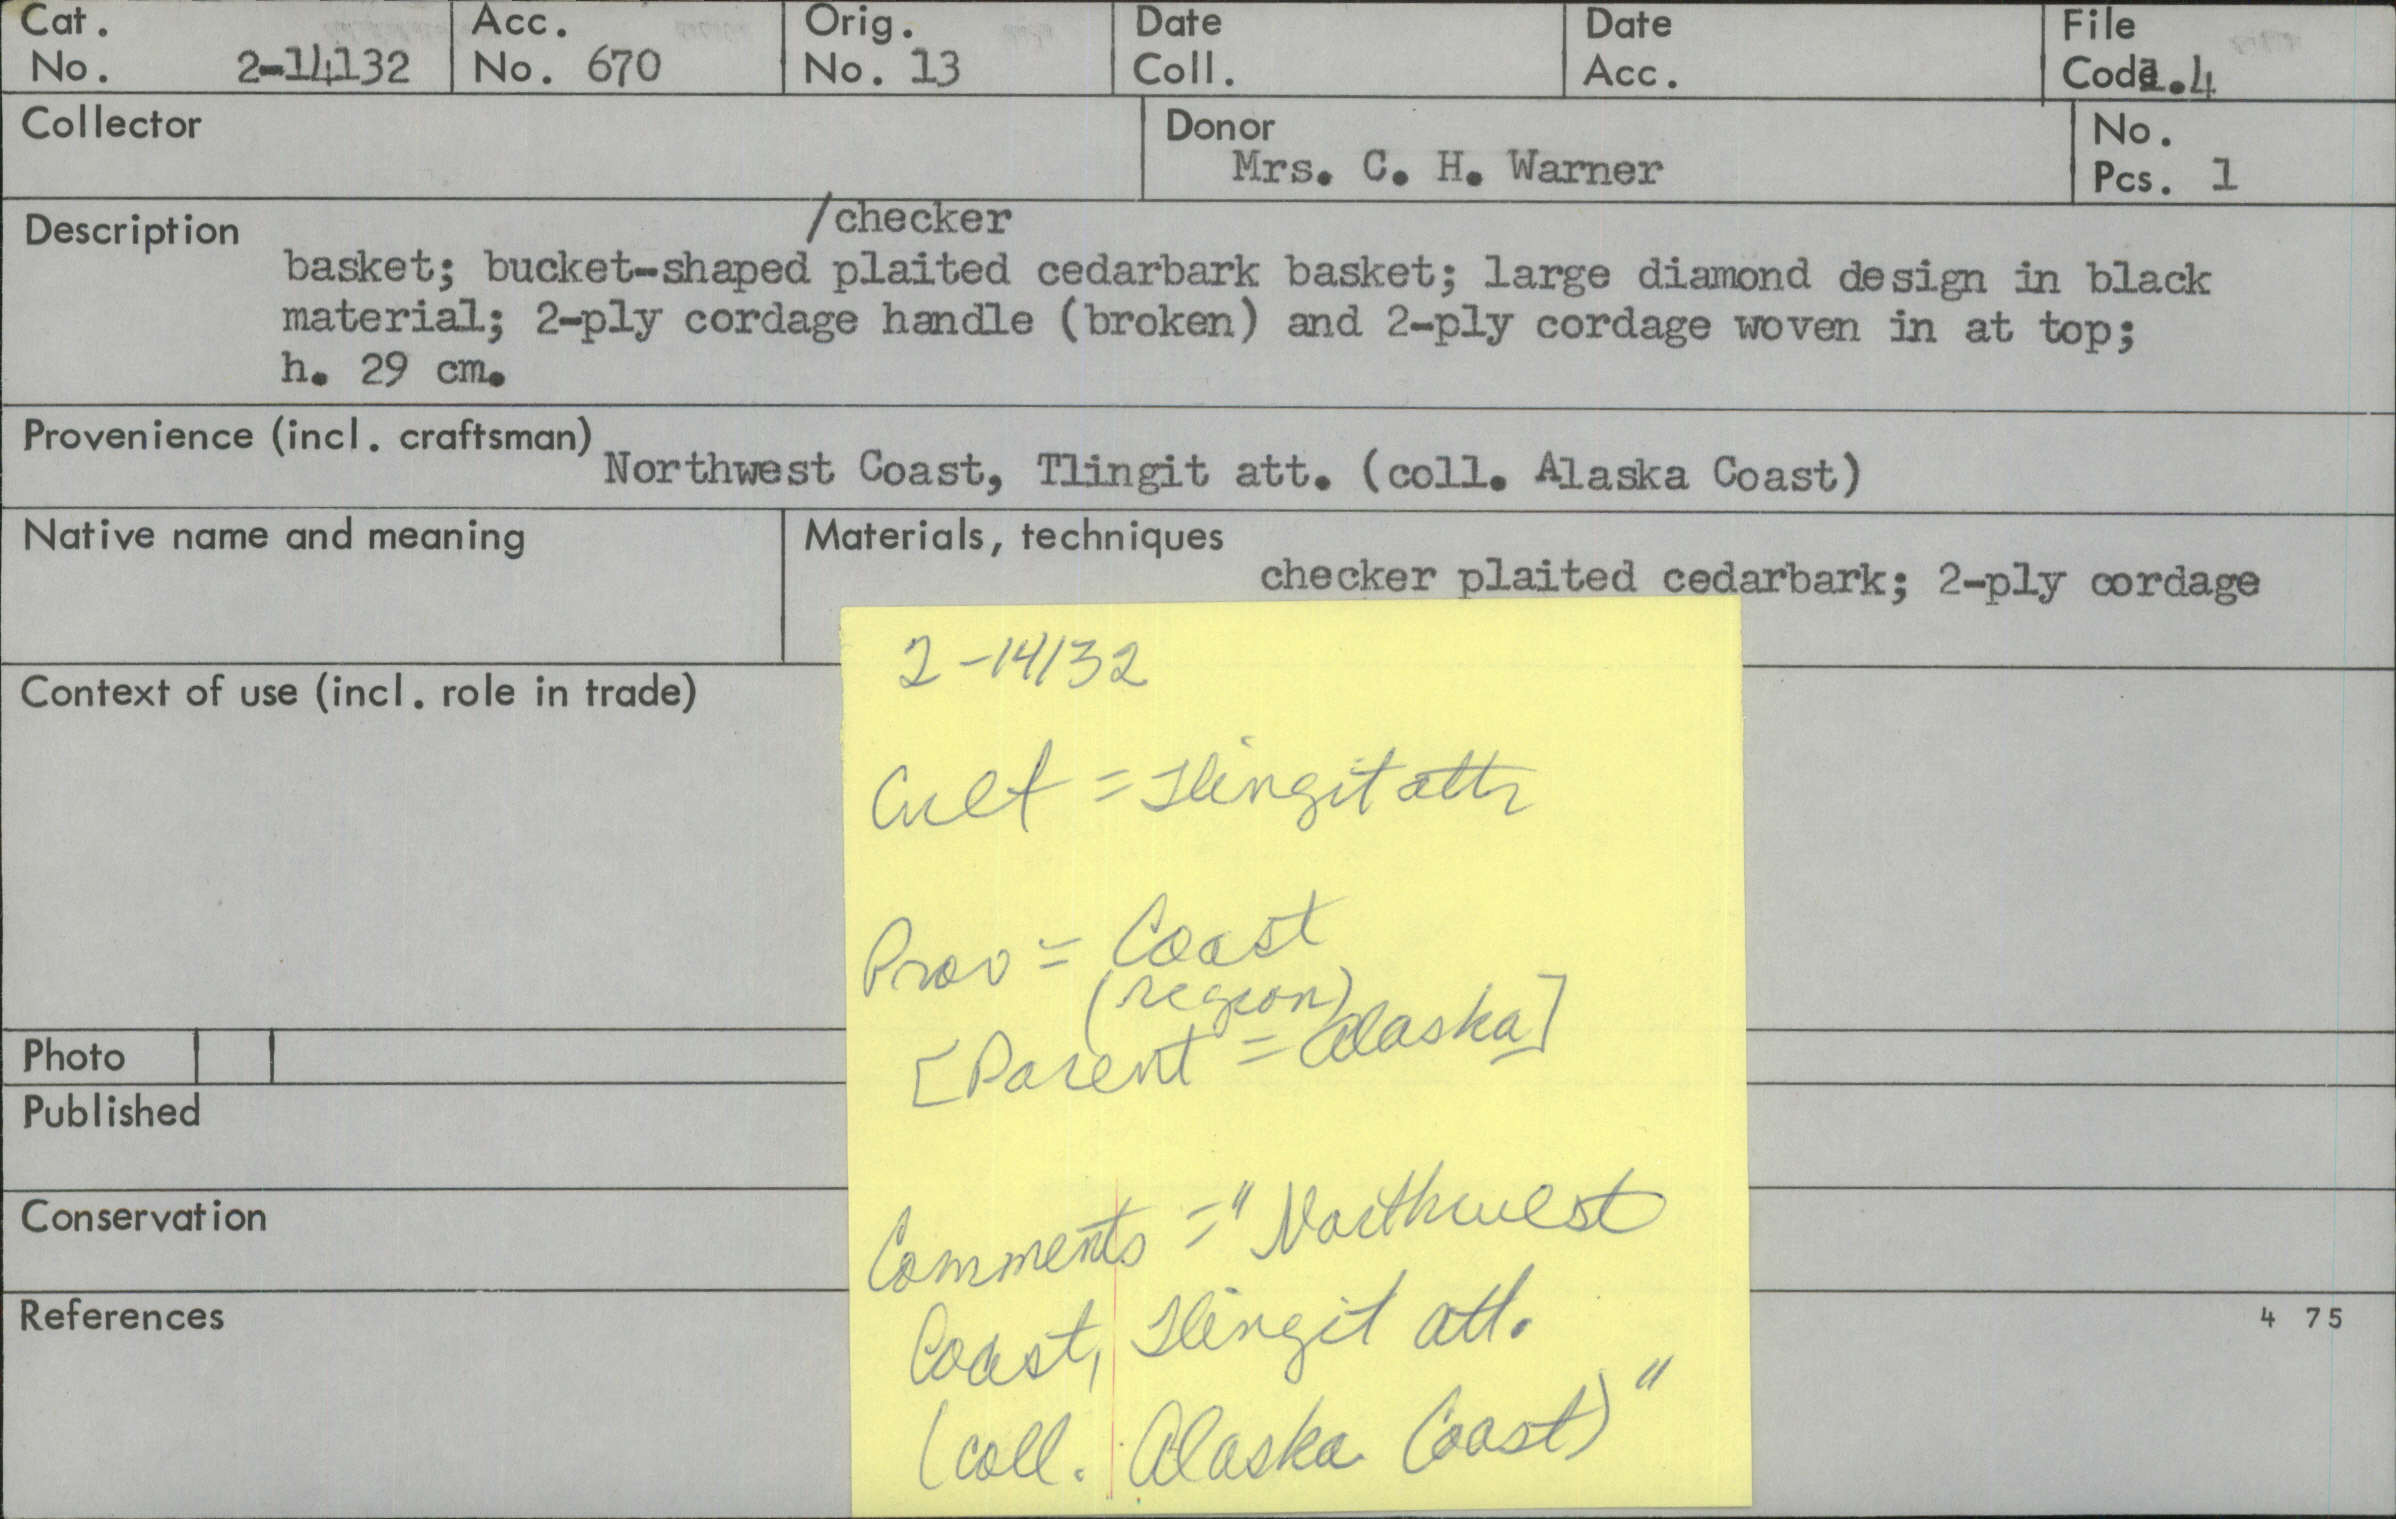 Cat. No. 2-14132
Acc. No. 670
Orig. No. 13
Date Coll.
Date Acc.
File Code 1.4
Collector
Donor
Mrs. C. H. Warner
No. Pcs. 1
Description
/checker
basket; bucket-shaped plaited cedarbark basket; large diamond design in black
material; 2-ply cordage handle (broken) and 2-ply cordage woven in at top;
h. 29 cm.
Provenience (incl. craftsman)
Northwest Coast, Tlingit att. (coll. Alaska Coast)
Native name and meaning
Materials, techniques
checker plaited cedarbark; 2-ply cordage
Context of use (incl. role in trade)
Photo
Published
Conservation
References
4 75
2-14132
Cult = Tlingit attr
Prov = Coast
(region)
[Parent = Alaska]
Comments = "Northwest
Coast, Tlingit att.
(coll. Alaska Coast)"